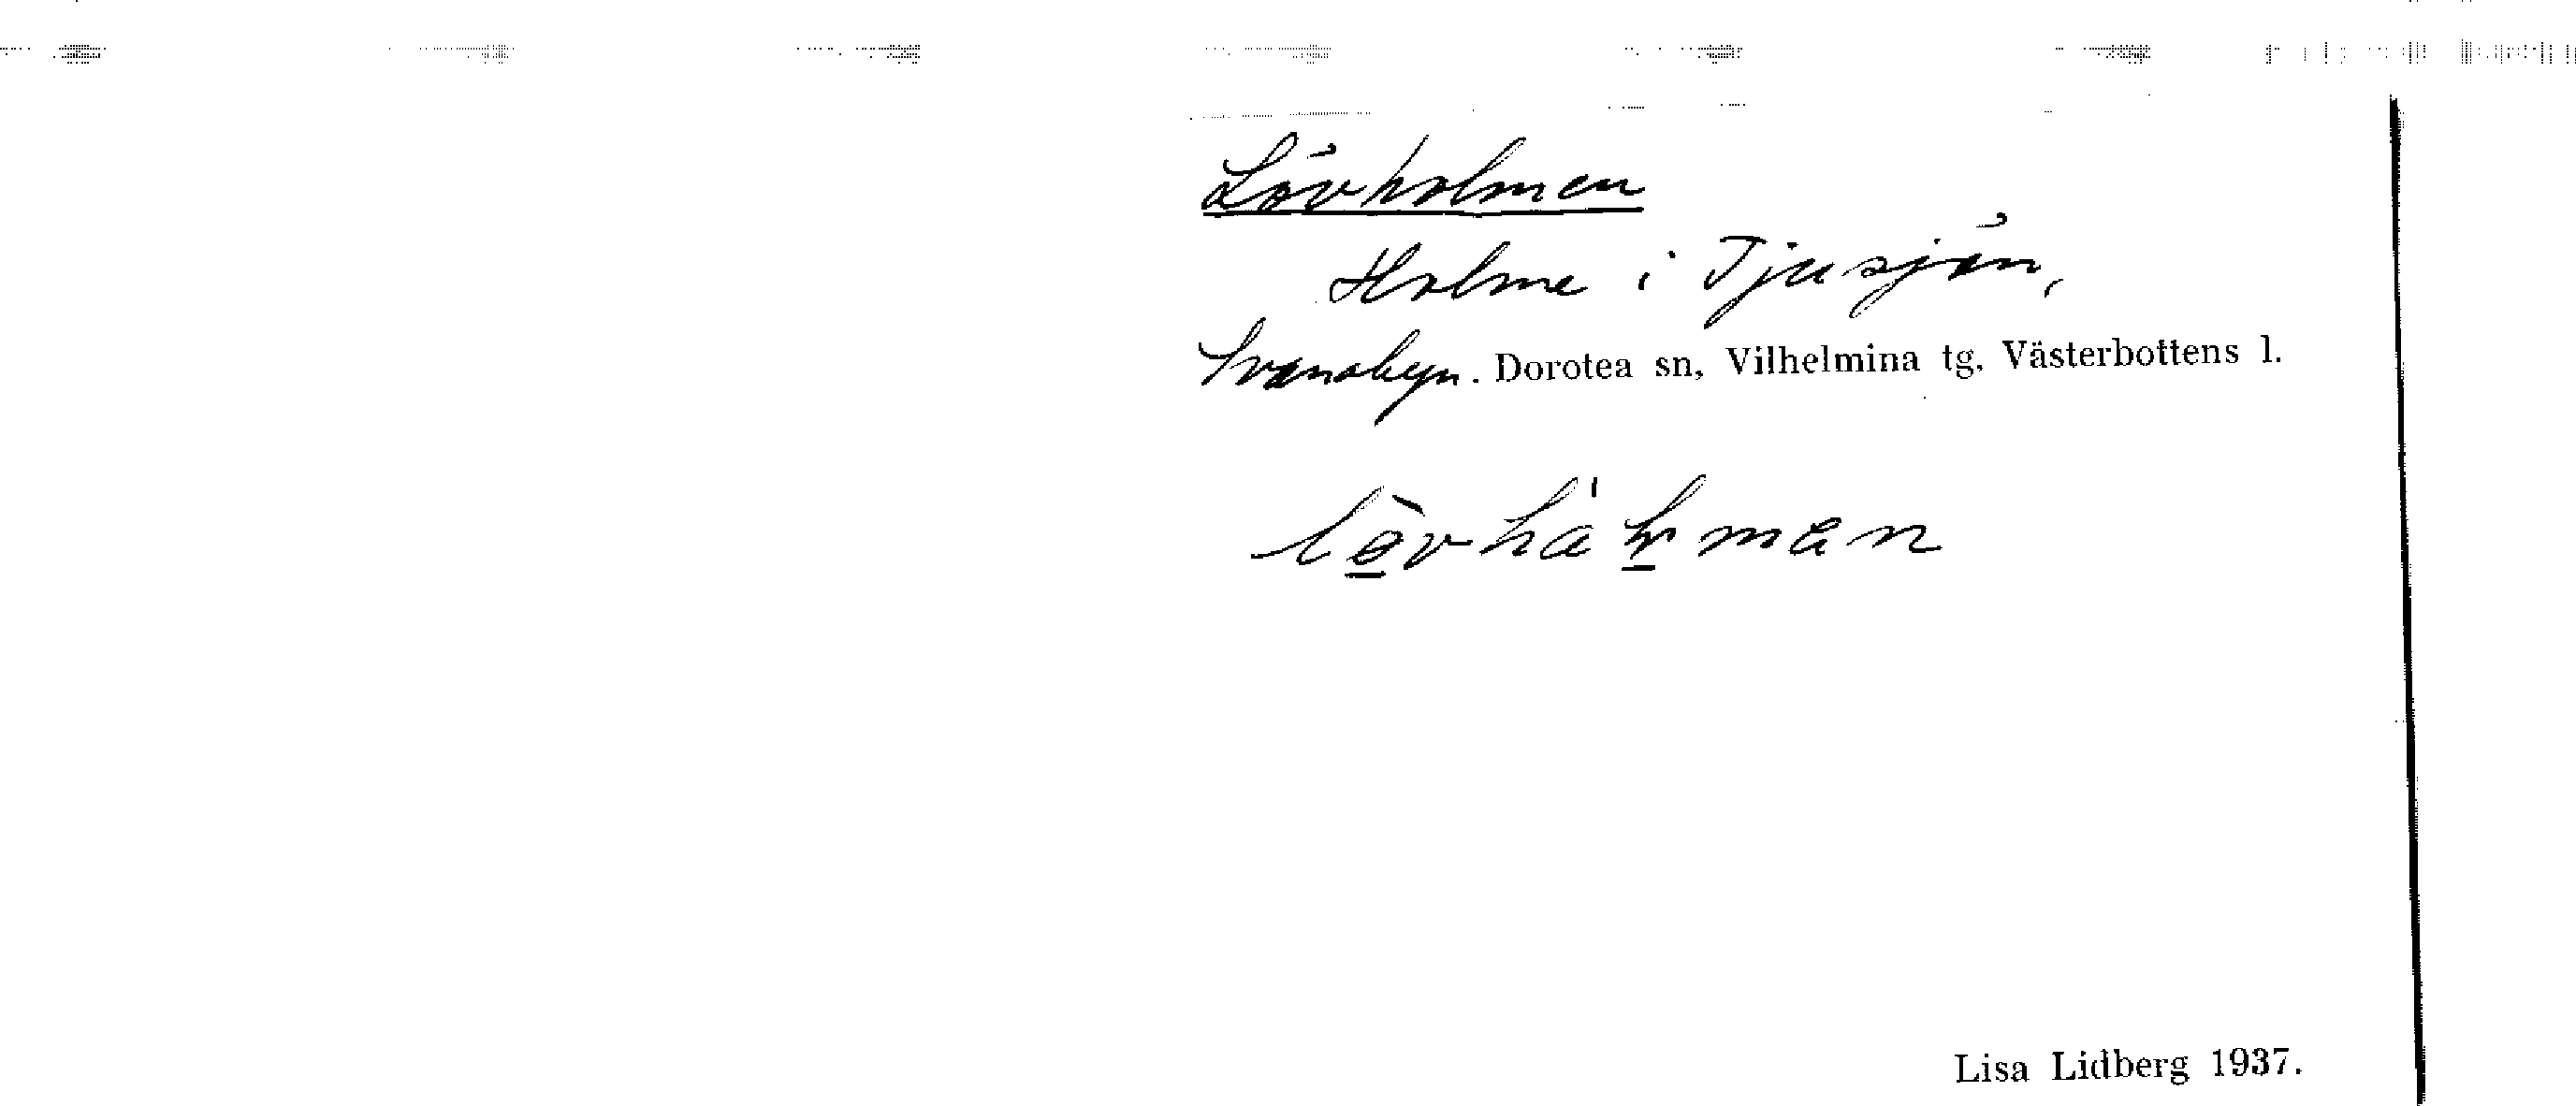 Lövholmen
Holme i Tjusjön,
Svanabyn. Dorotea sn, Vilhelmina tg, Västerbottens l.
Lisa Lidberg 1937.